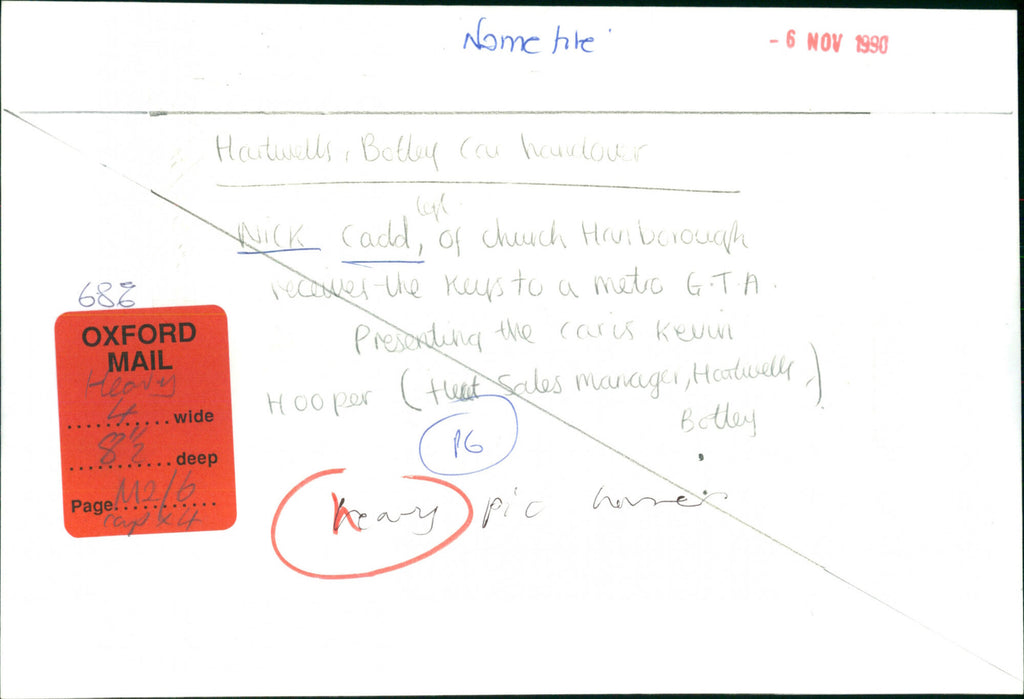 Name file
- 6 NOV 1990
Hartwells, Botley car handover
left
Nick Cadd, of church Hanborough
receives the keys to a metro G.T.A.
Presenting the car is Kevin
Hooper (fleet Sales Manager, Hartwells,)
Botley
16
heavy pic
OXFORD
MAIL
Heavy
4 wide
8½ deep
Page M2/6
cap x 4